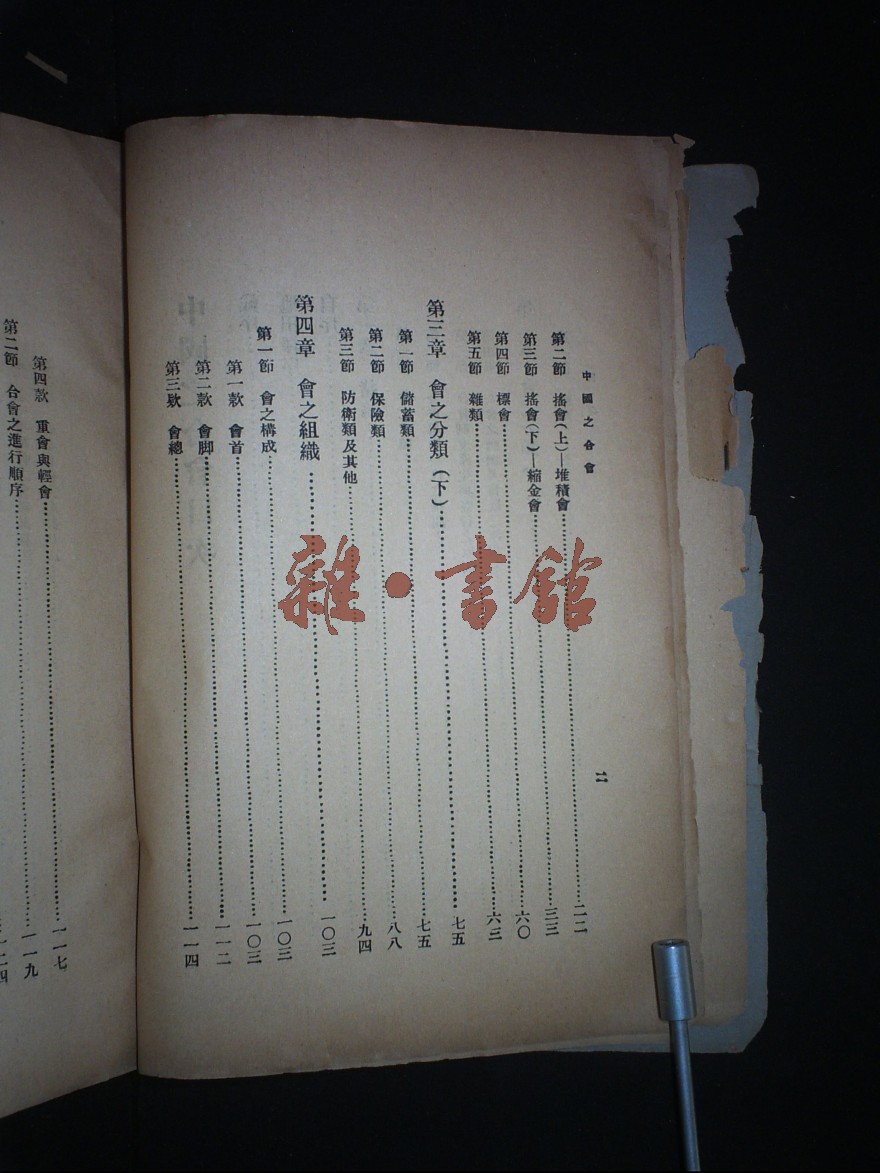 中國之合會
二
第二節 搖會(上)—堆積會……二二
第三節 搖會(下)—縮金會……三三
第四節 標會……六〇
第五節 雜類……六三
第三章 會之分類(下)……七五
第一節 儲蓄類……七五
第二節 保險類……八八
第三節 防衛類及其他……九四
第四章 會之組織……一〇三
第一節 會之構成……一〇三
第一款 會首……一〇三
第二款 會脚……一一二
第三欵 會總……一一四
第四款 重會與輕會……一一七
第二節 合會之進行順序……一一九
雜·書館